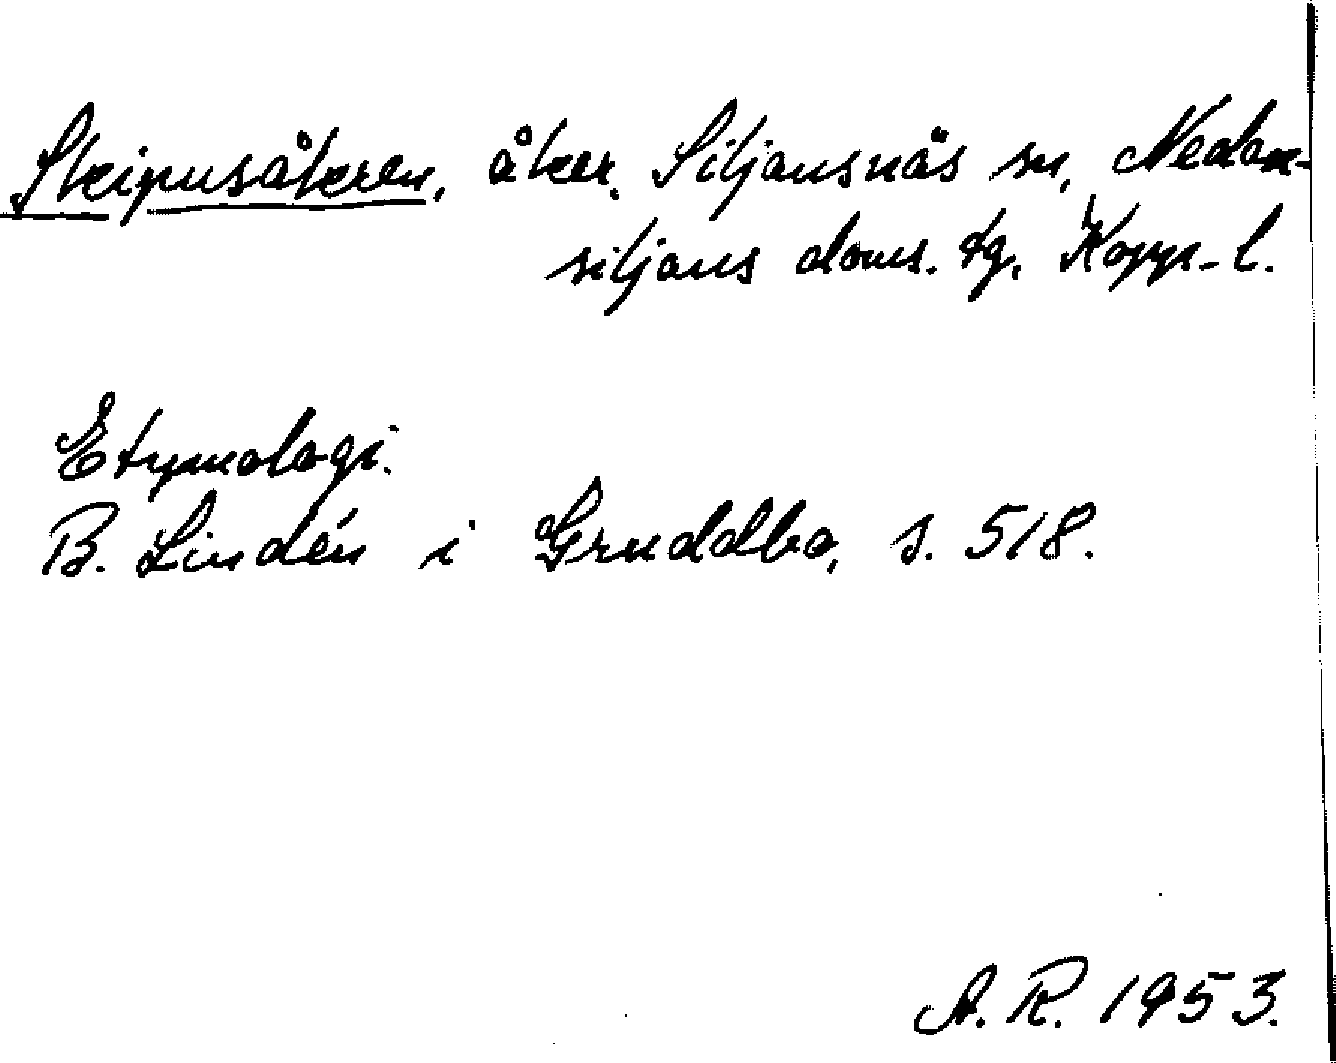 Skipusåkren, åker, Siljansnäs sn, Nedan-
siljans doms. tg, Kopp. l.
Etymologi.
B. Lindén i Gruddbo, s. 518.
A. R. 1953.